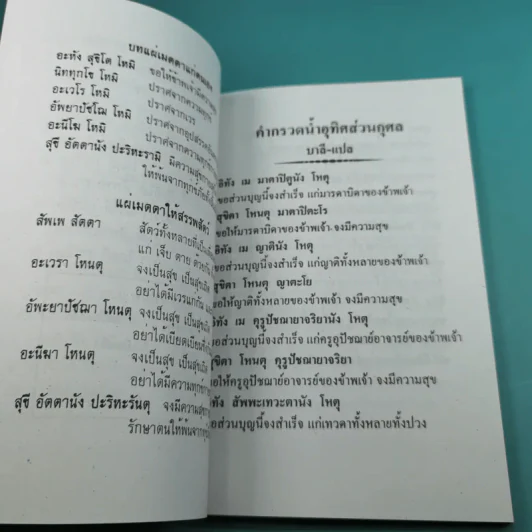 บทแผ่เมตตาแก่ตนเอง
อะหัง สุขิโต โหมิ ขอให้ข้าพเจ้ามีความสุข
นิททุกโข โหมิ ปราศจากความทุกข์
อะเวโร โหมิ ปราศจากเวร
อัพยาปัชโฌ โหมิ ปราศจากอุปสรรค
อะนีโฆ โหมิ ปราศจากความทุกข์
สุขี อัตตานัง ปะริหะรามิ มีความสุข
ให้พ้นจากทุกข์ภัย
แผ่เมตตาให้สรรพสัตว์
สัพเพ สัตตา สัตว์ทั้งหลายที่เป็นเพื่อน
แก่ เจ็บ ตาย ด้วยกัน
อะเวรา โหนตุ จงเป็นสุข เป็นสุขเถิด
อย่าได้มีเวรแก่กัน
อัพะยาปัชฌา โหนตุ จงเป็นสุข เป็นสุขเถิด
อย่าได้เบียดเบียน
อะนีฆา โหนตุ จงเป็นสุข เป็นสุขเถิด
อย่าได้มีความทุกข์
สุขี อัตตานัง ปะริหะรันตุ จงมีความสุข
รักษาตนให้พ้นจากทุกข์
คำกรวดน้ำอุทิศส่วนกุศล
บาลี-แปล
อิทัง เม มาตาปิตูนัง โหตุ
ขอส่วนบุญนี้จงสำเร็จ แก่มารดาบิดาของข้าพเจ้า
สุขิตา โหนตุ มาตาปิตะโร
ขอให้มารดาบิดาของข้าพเจ้า จงมีความสุข
อิทัง เม ญาตินัง โหตุ
ขอส่วนบุญนี้จงสำเร็จ แก่ญาติทั้งหลายของข้าพเจ้า
สุขิตา โหนตุ ญาตะโย
ขอให้ญาติทั้งหลายของข้าพเจ้า จงมีความสุข
อิทัง เม คุรูปัชฌายาจริยานัง โหตุ
ขอส่วนบุญนี้จงสำเร็จ แก่ครูอุปัชฌาย์อาจารย์ของข้าพเจ้า
สุขิตา โหนตุ คุรูปัชฌายาจริยา
ขอให้ครูอุปัชฌาย์อาจารย์ของข้าพเจ้า จงมีความสุข
อิทัง สัพพะเทวะตานัง โหตุ
ขอส่วนบุญนี้จงสำเร็จ แก่เทวดาทั้งหลายทั้งปวง